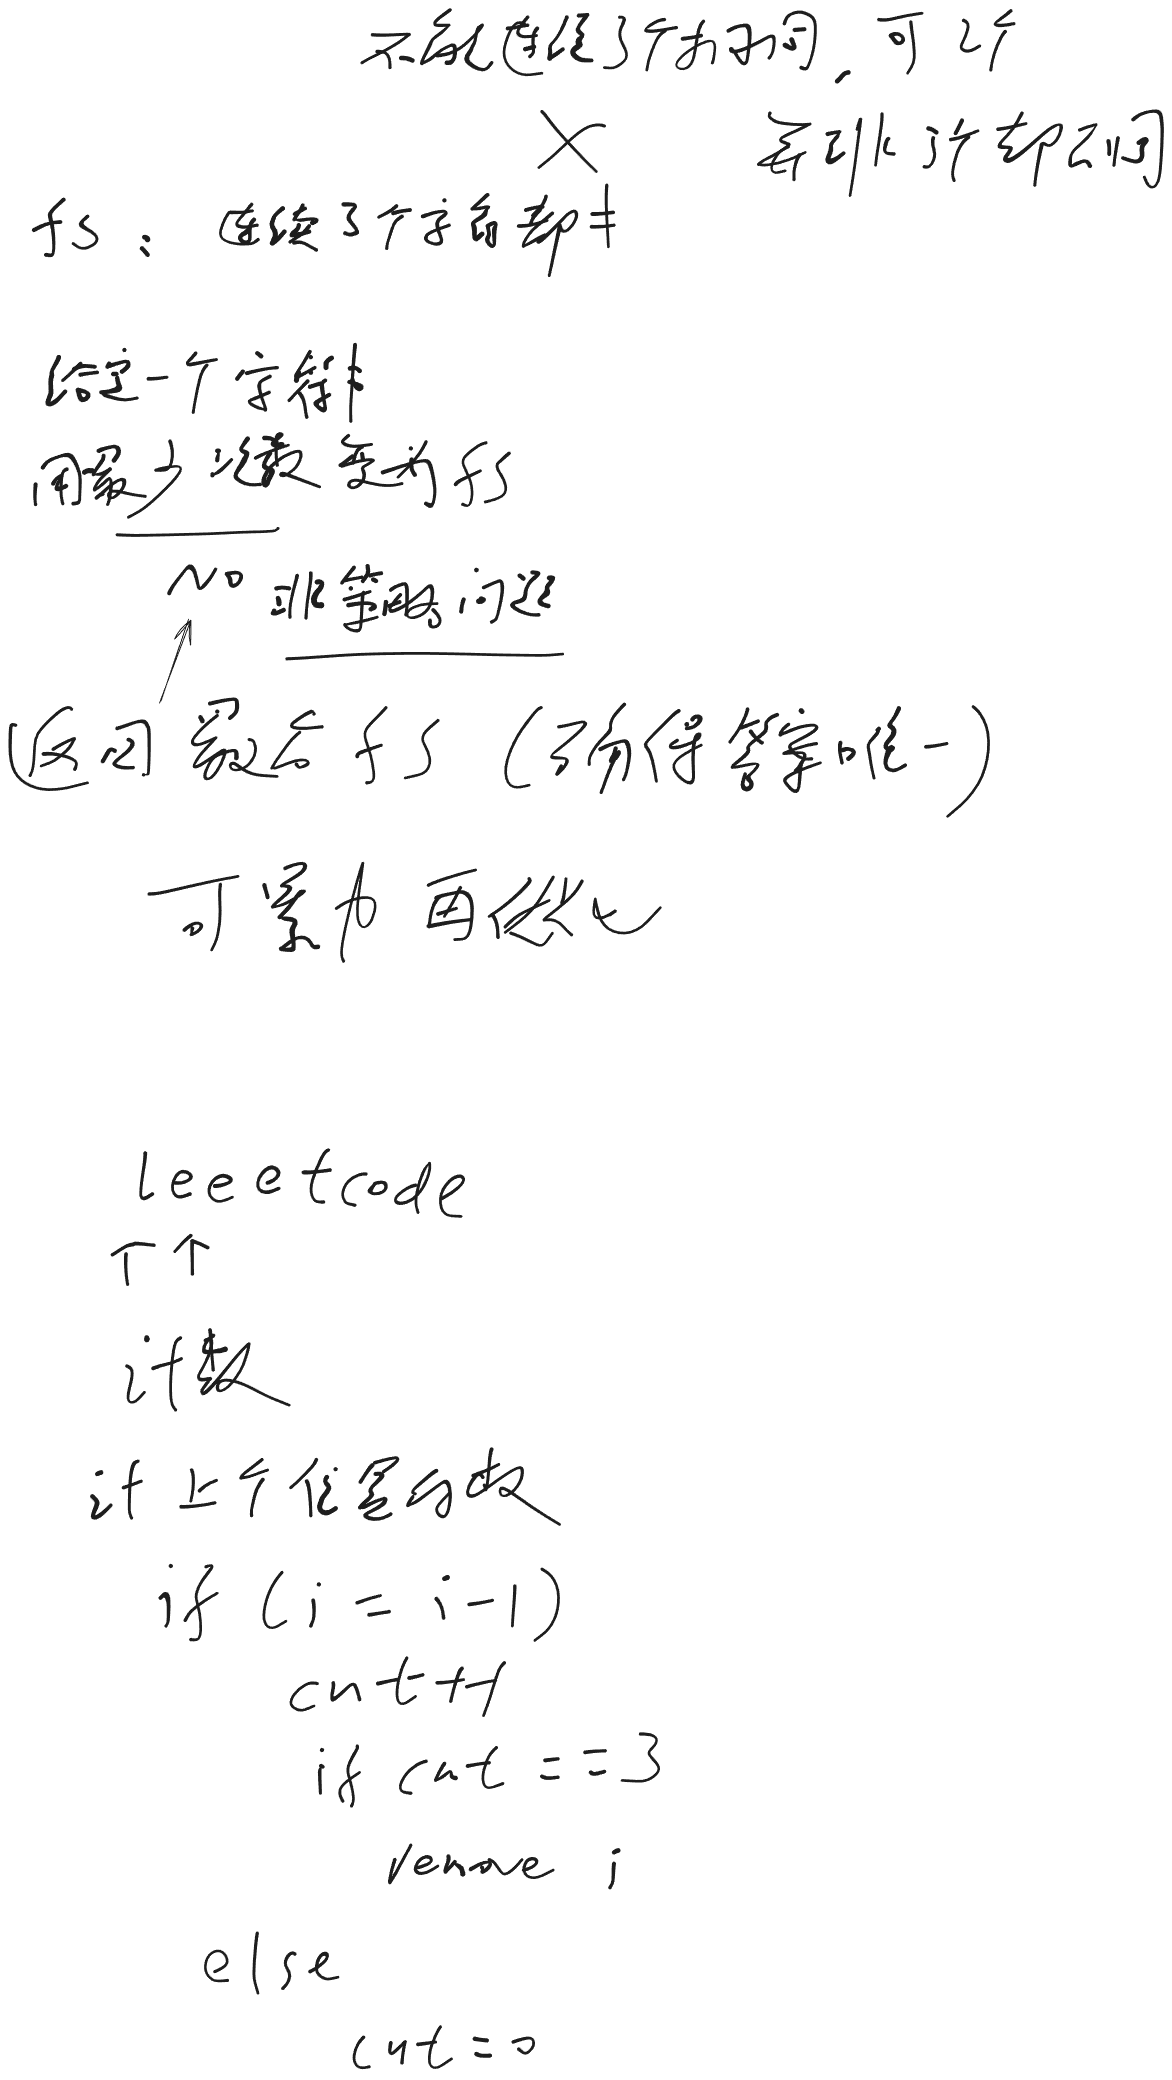 不能连续3个相同，可2个
并非3个却不同
fs：连续3个字母都
给定一个字符串
用最少次数变为fs
No 非策略问题
返回最后fs（确保答案唯一）
可暴力再优化
leeetcode
↑↑
计数
计上个位置的数
if (i = i-1)
cnt++
if cnt ==3
remove i
else
cnt=0